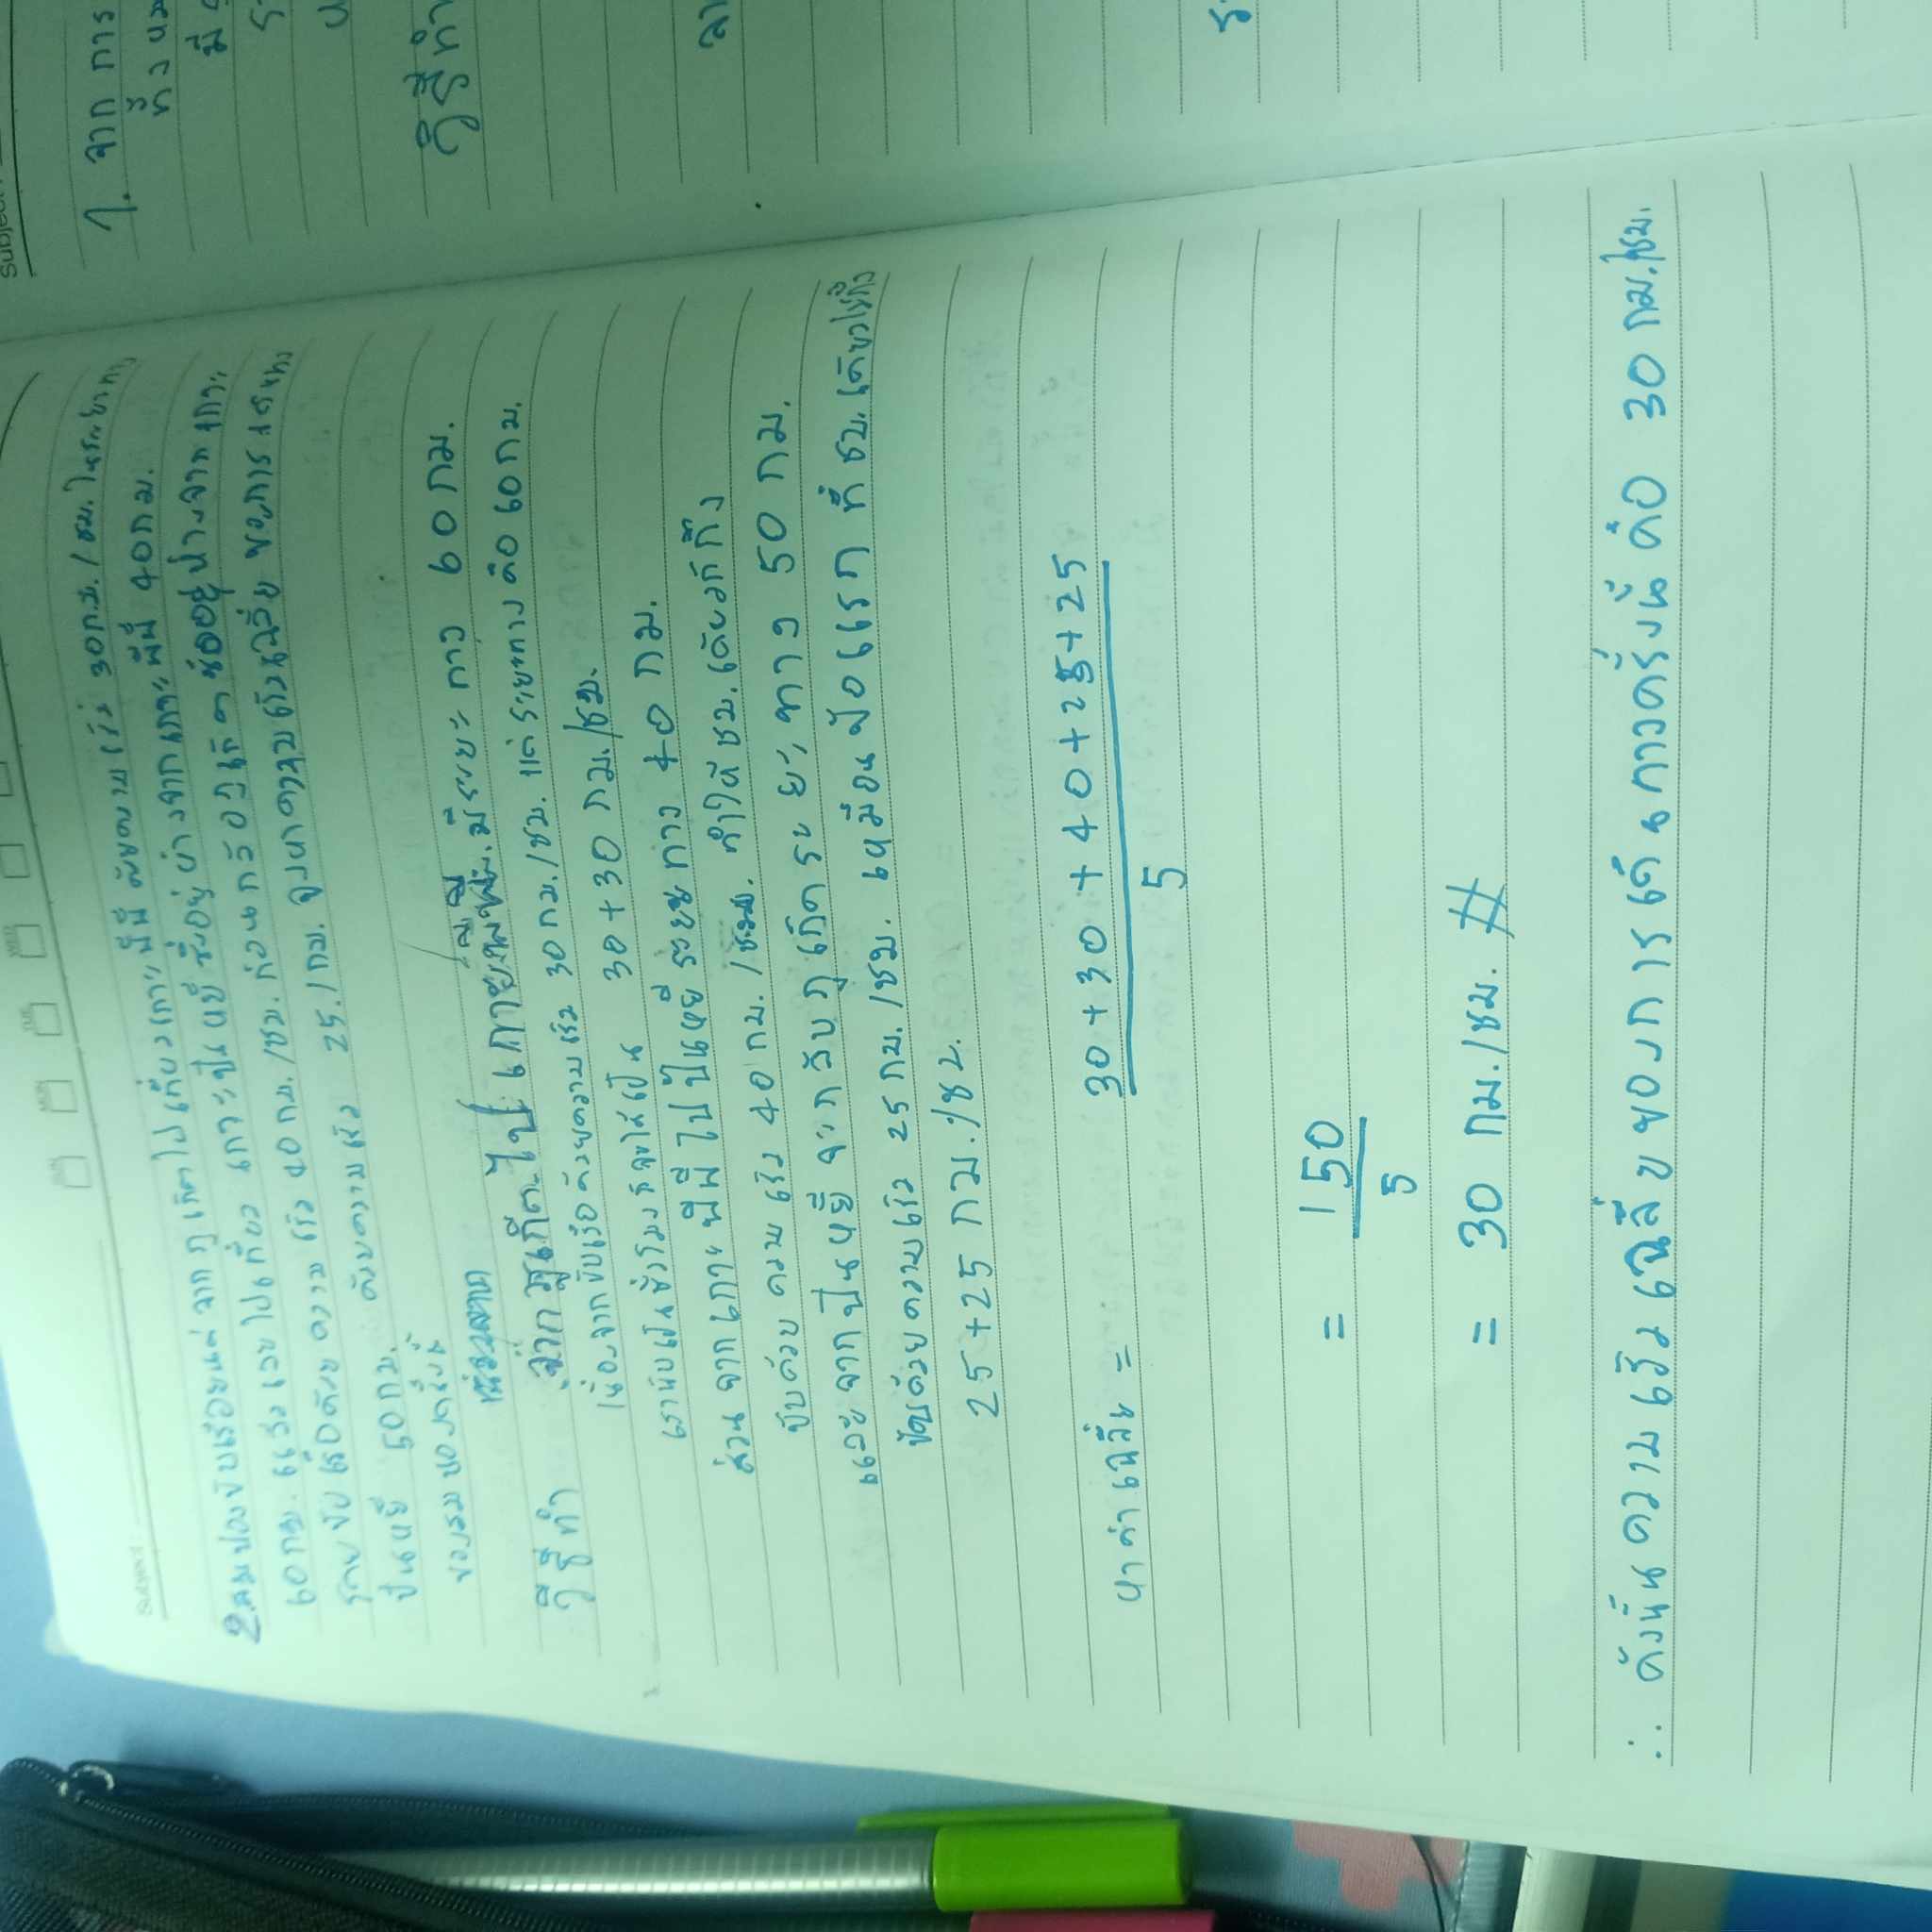 SUN MON TUE WED
Subject :
2.สมปองขับเรือยนต์ จากภูเก็ตไปเที่ยวเกาะพีพี ด้วยความเร็ว 30ก.ม. / ชม. ในระยะทาง
60กม. แล้วเลยไปเที่ยว เกาะปันหยี ซึ่งอยู่ห่างจากเกาะพีพี 40กม.
โดยขับเรือด้วย ความเร็ว 40 กม. /ชม. ก่อนกลับภูเก็ต ซึ่งอยู่ห่างจาก เกาะ
ปันหยี 50กม. ด้วยความเร็ว 25./กม. จงหาความเร็วเฉลี่ย ของการเดินทาง
ของสมปองครั้งนี้
วิธีทำ จากภูเก็ตไป เกาะพีพี มีระยะทาง 60 กม.
เนื่องจากขับเรือด้วยความเร็ว 30 กม. /ชม. แต่ระยะทาง คือ 60 กม.
เรานับเป็นชั่วโมงก็จะได้เป็น 30+30 กม./ชม.
ส่วน จากเกาะ พีพี ไปปันหยี ระยะทาง 40 กม.
ขับด้วย ความเร็ว 40 กม. /ชม. ทำให้ ชม. เดียวก็ถึง
และจากปันหยี จะกลับภูเก็ต ระยะทาง 50 กม.
ขับด้วยความเร็ว 25 กม. /ชม. เหมือนข้อแรก ที่ ชม. เดียวไม่ถึง
25+25 กม./ชม.
หาค่าเฉลี่ย = 30 + 30 + 40 + 25 + 25
5
= 150
5
= 30 กม./ชม. #
∴ ดังนั้นความเร็วเฉลี่ยของการเดินทางครั้งนี้ คือ 30 กม./ชม.
Subject
1. จาก การ
วิธีทำ